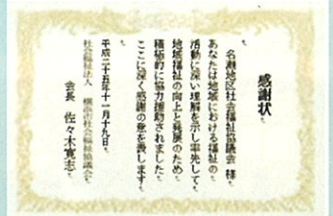 感謝状
名瀬地区社会福祉協議会 様
あなたは地域における福祉の
活動に深い理解を示し率先して
地域福祉の向上と発展のため
積極的に協力援助されました
ここに深く感謝の意を表します
平成二十五年十一月十九日
社会福祉法人 横浜市社会福祉協議会
会長 佐々木寛志